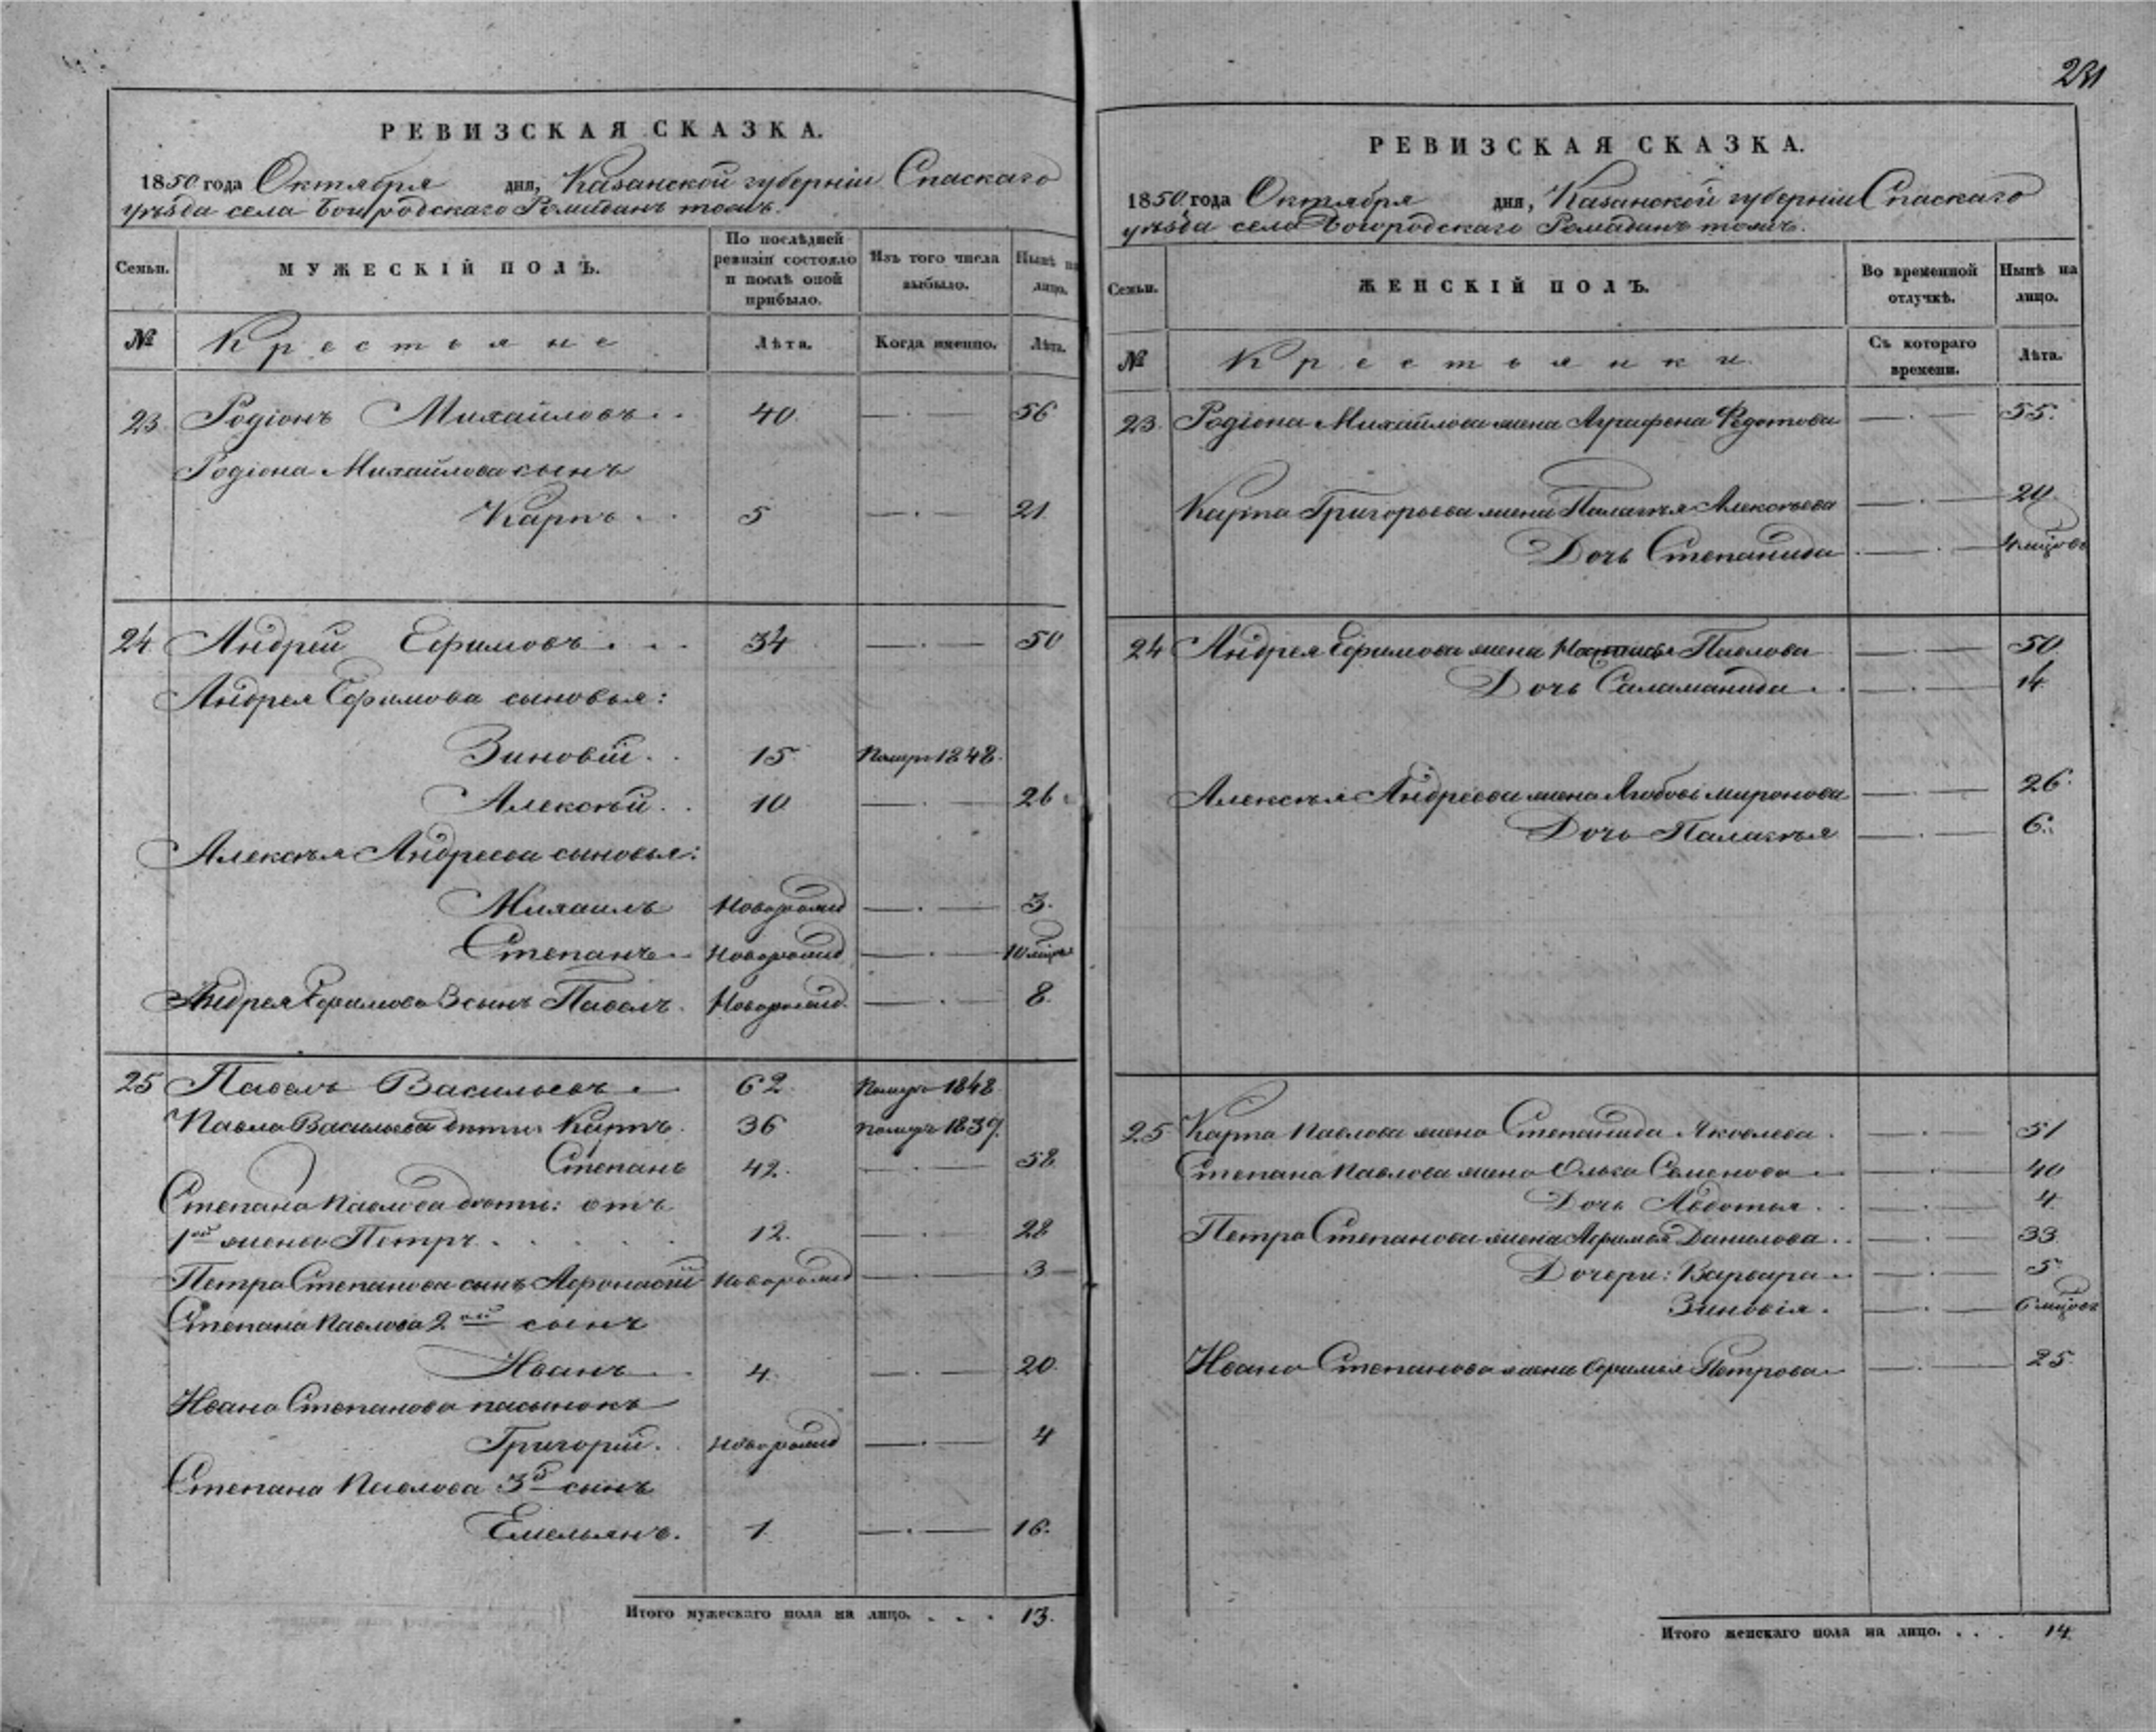 231
РЕВИЗСКАЯ СКАЗКА.
1850 года Октября дня, Казанской губерніи Спаскаго
уѣзда села Богородскаго Ромадань тожъ.
Семьи.
МУЖЕСКІЙ ПОЛЪ.
По послѣдней ревизіи состояло и послѣ оной прибыло.
Изъ того числа выбыло.
Нынѣ на лицо.
№ Крестьяне Лѣта. Когда именно. Лѣта.
23 Родіонъ Михайловъ 40 — . — 56
Родіона Михайлова сынъ
Карпъ 5 — . — 21
24 Андрей Ефимовъ 34 — . — 50
Андрея Ефимова сыновья:
Зиновій 15 Помер 1848
Алексѣй 10 — . — 26
Алексѣя Андреева сыновья:
Михаилъ Новорожд — . — 3
Степанъ Новорожд — . — 10 мцовъ
Андрея Ефимова 3 сынъ Павелъ Новорожд — . — 8
25 Павелъ Васильевъ 62 Померъ 1848
Павла Васильева дѣти Карпъ 36 померъ 1837
Степанъ 42 — . — 58
Степана Павлова дѣти: отъ
1ой жены Петръ 12 — . — 28
Петра Степанова сынъ Афонасій Новорожд — . — 3
Степана Павлова 2ой сынъ
Иванъ 4 — . — 20
Ивана Степанова пасынокъ
Григорій Новорожд — . — 4
Степана Павлова 3й сынъ
Емельянъ 1 — . — 16
Итого мужескаго пола на лицо. . . . 13.
РЕВИЗСКАЯ СКАЗКА.
1850 года Октября дня, Казанской губерніи Спаскаго
уѣзда села Богородскаго Ромадань тожъ.
Семьи.
ЖЕНСКІЙ ПОЛЪ.
Во временной отлучкѣ.
Нынѣ на лицо.
№ Крестьянки Съ котораго времени. Лѣта.
23 Родіона Михайлова жена Аграфена Федотова — . — 55
Карпа Григорьева жена Палагѣя Алексѣева — . — 20
Дочь Степанида — . — 4 мцовъ
24 Андрея Ефимова жена Настасья Павлова — . — 50
Дочь Саламанида — . — 14
Алексѣя Андреева жена Любовь Миронова — . — 26
Дочь Палагѣя — . — 6
25 Карпа Павлова жена Степанида Яковлева — . — 51
Степана Павлова жена Ольга Семенова — . — 40
Дочь Авдотья — . — 4
Петра Степанова жена Афимья Данилова — . — 33
Дочери: Варвара — . — 5
Зиновія — . — 6 мцовъ
Ивана Степанова жена Офимья Петрова — . — 25
Итого женскаго пола на лицо. . . . 14